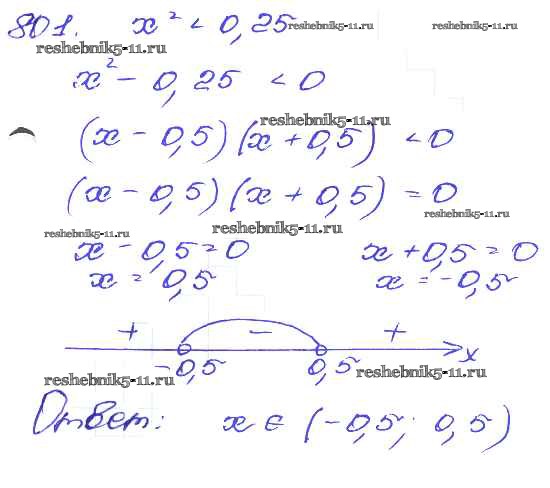 801. x² < 0,25 reshebnik5-11.ru reshebnik5-11.ru
reshebnik5-11.ru
x² - 0,25 < 0
reshebnik5-11.ru
(x - 0,5)(x + 0,5) < 0
(x - 0,5)(x + 0,5) = 0
reshebnik5-11.ru
reshebnik5-11.ru
reshebnik5-11.ru
x - 0,5 = 0 x + 0,5 = 0
x = 0,5 x = -0,5
+ - +
-0,5 0,5 x
reshebnik5-11.ru reshebnik5-11.ru
Ответ: x ∈ (-0,5; 0,5)